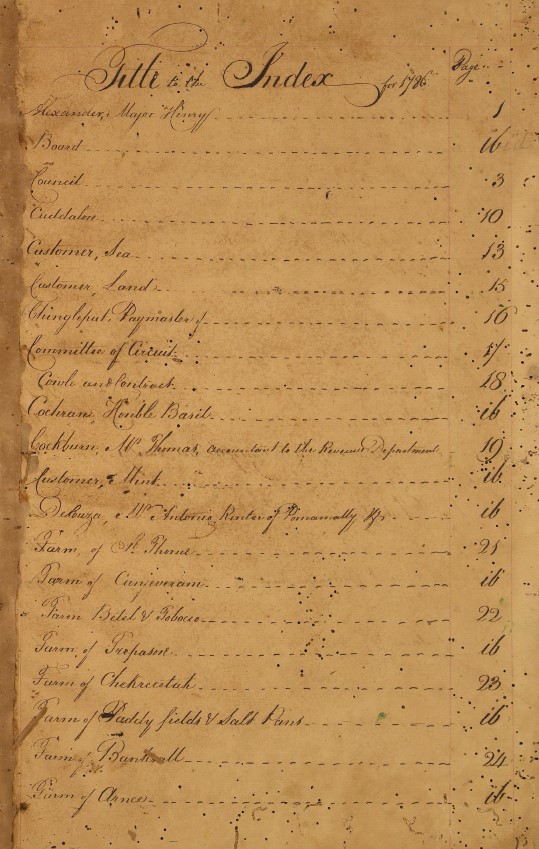 Title to the Index for 1786 Page
Alexander, Major Henry 1
Board ib
Council 3
Cuddalore 10
Customer, Sea 13
Customer, Land 15
Chingleput, Paymaster of 16
Committee of Circuit 17
Cowle and Contract 18
Cochrane Honble Basil ib
Cockburn, Mr. Thomas, accountant to the Revenue Department 19
Customer, Mint ib
Desouza, Mr. Antonio Renter of Ponamally &c ib
Farm, of St. Thome 21
Farm of Conjeveram ib
Farm Betel & Tobacco 22
Farm of Trepasore ib
Farm of 23
Farm of Paddy fields & Salt Pans ib
Farm of 24
Farm of Arnee ib